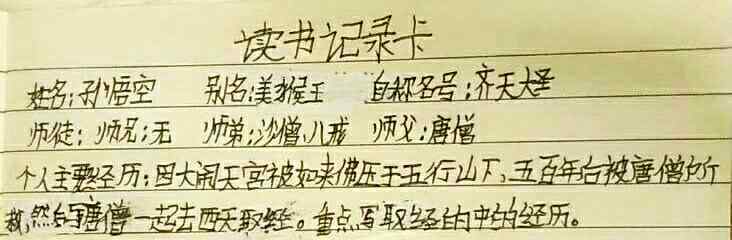 读书记录卡
姓名:孙悟空 别名:美猴王 自称名号:齐天大圣
师徒:师兄:无 师弟:沙僧、八戒 师父:唐僧
个人主要经历:因大闹天宫被如来佛压于五行山下,五百年后被唐僧所
救,然后与唐僧一起去西天取经。重点写取经的中的经历。